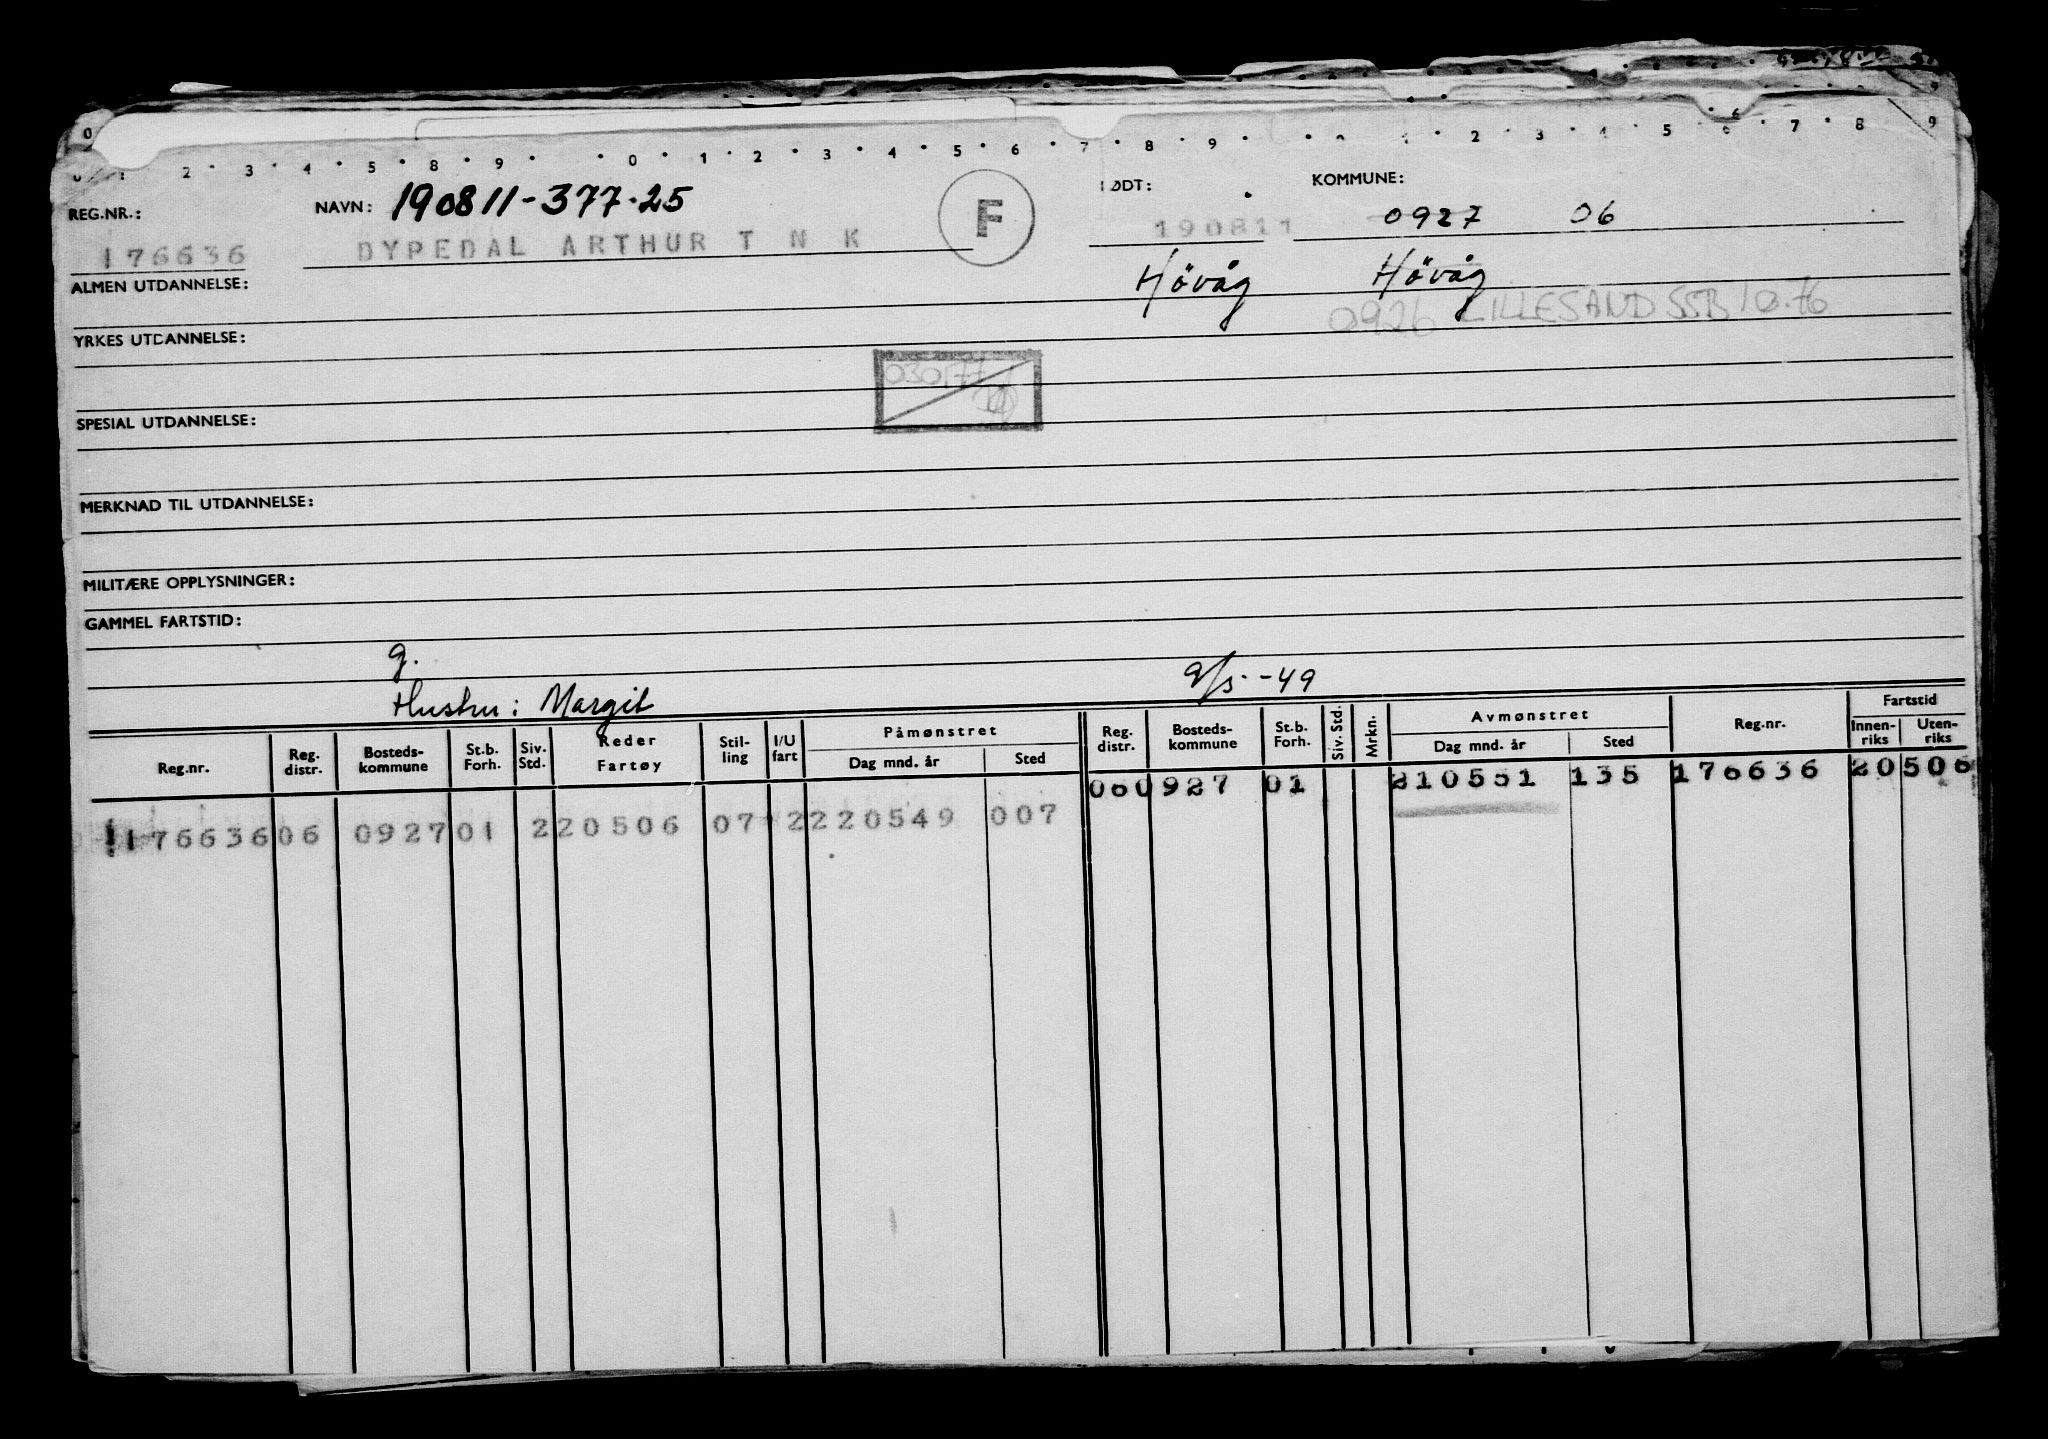 0 1 2 3 4 5 8 9 0 1 2 3 4 5 6 7 8 9 0 1 2 3 4 5 6 7 8 9
REG.NR.: NAVN: 190811-377.25 F FØDT: KOMMUNE:
176636 DYPEDAL ARTHUR T N K 190811 0927 06
ALMEN UTDANNELSE: Hövåg Hövåg
0926 LILLESAND SSB 10.76
YRKES UTDANNELSE:
030177
SPESIAL UTDANNELSE:
MERKNAD TIL UTDANNELSE:
MILITÆRE OPPLYSNINGER:
GAMMEL FARTSTID:
g.
Hustru: Margit 9/5-49
Reg.nr. Reg. distr. Bosteds-kommune St.b. Forh. Siv. Std. Reder Fartøy Stil-ling I/U fart Påmønstret Dag mnd. år Sted Reg. distr. Bosteds-kommune St.b. Forh. Siv. Std. Mrkn. Avmønstret Dag mnd. år Sted Reg.nr. Fartstid Innen-riks Uten-riks
060927 01 210551 135 176636 20506
176636 06 0927 01 2 20506 07 2 220549 007